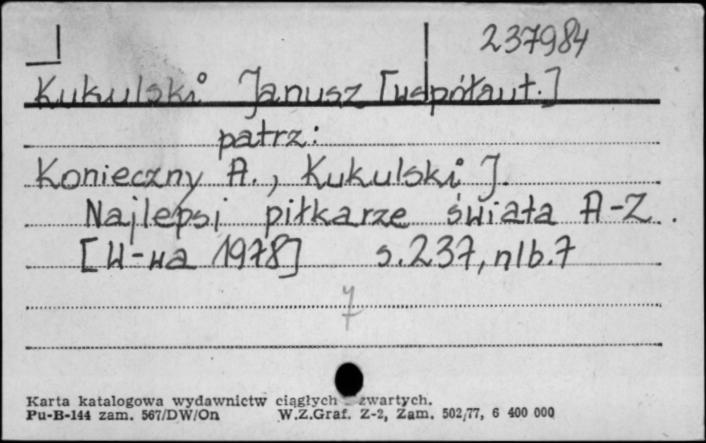 237984
Kukulski Janusz [współaut.]
patrz:
Konieczny A., Kukulski J.
Najlepsi piłkarze świata A-Z.
[W-wa 1978] s.237, nlb.7
7
Karta katalogowa wydawnictw ciągłych - zwartych.
Pu-B-144 zam. 567/DW/On W.Z.Graf. Z-2, Zam. 502/77, 6 400 000